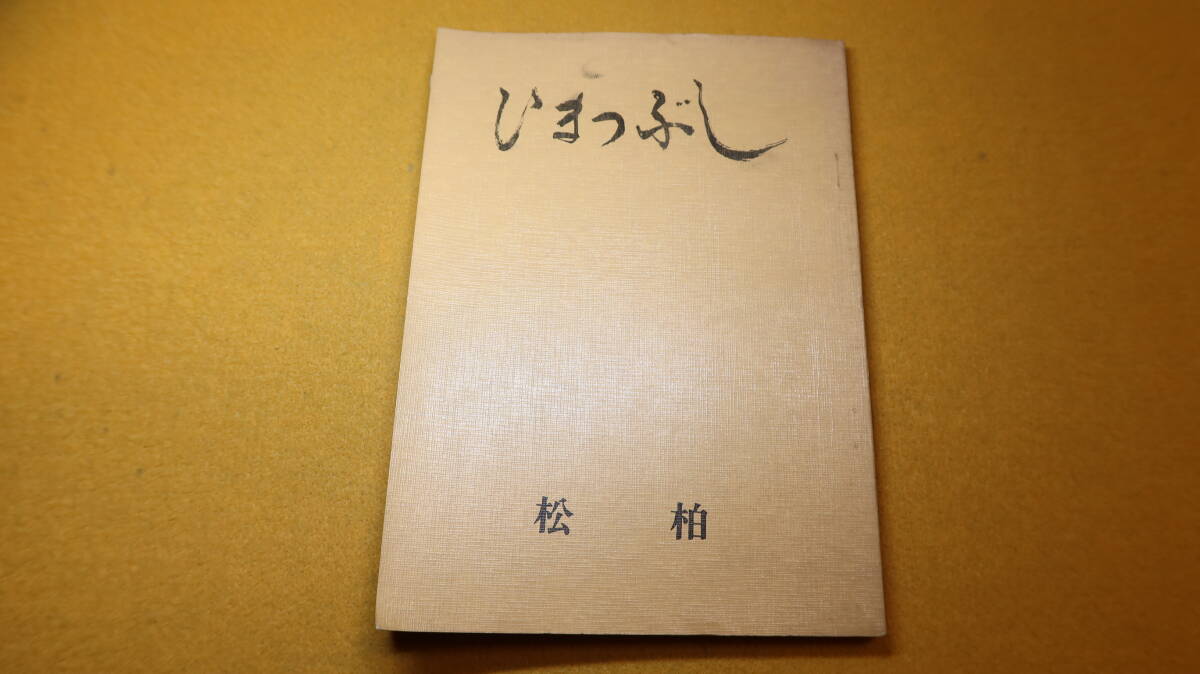 ひまつぶし
松柏